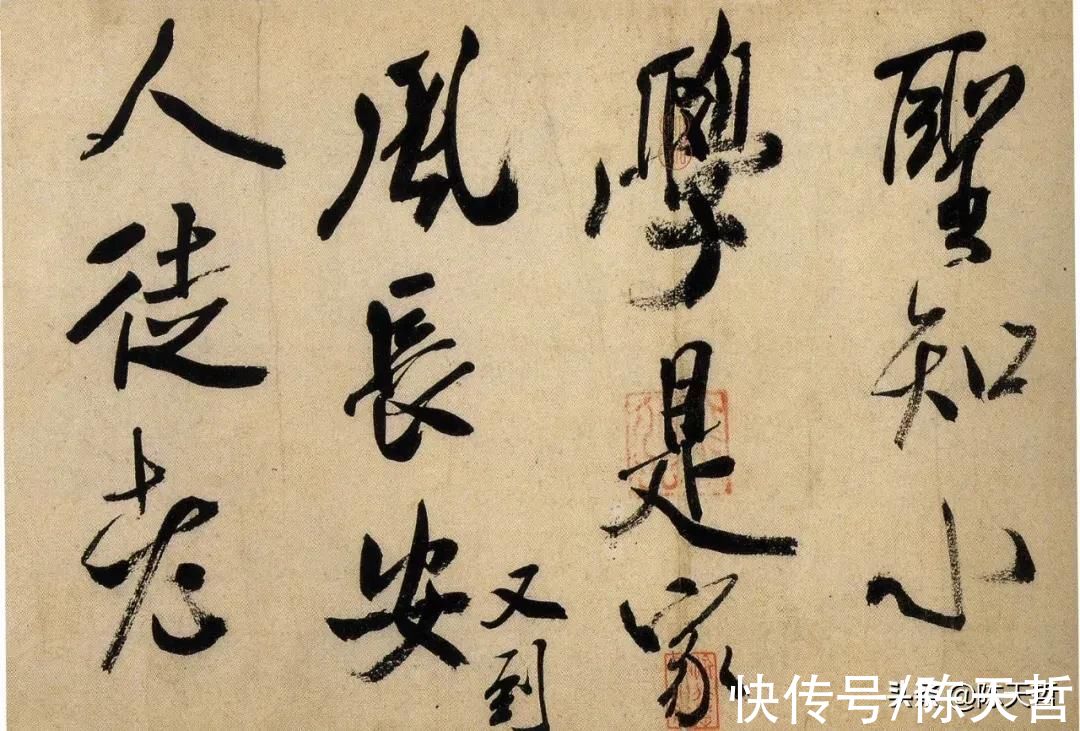 聖知小
學是家
風長安
又到
人徒老
头条 @陈天哲
快传号/陈天哲